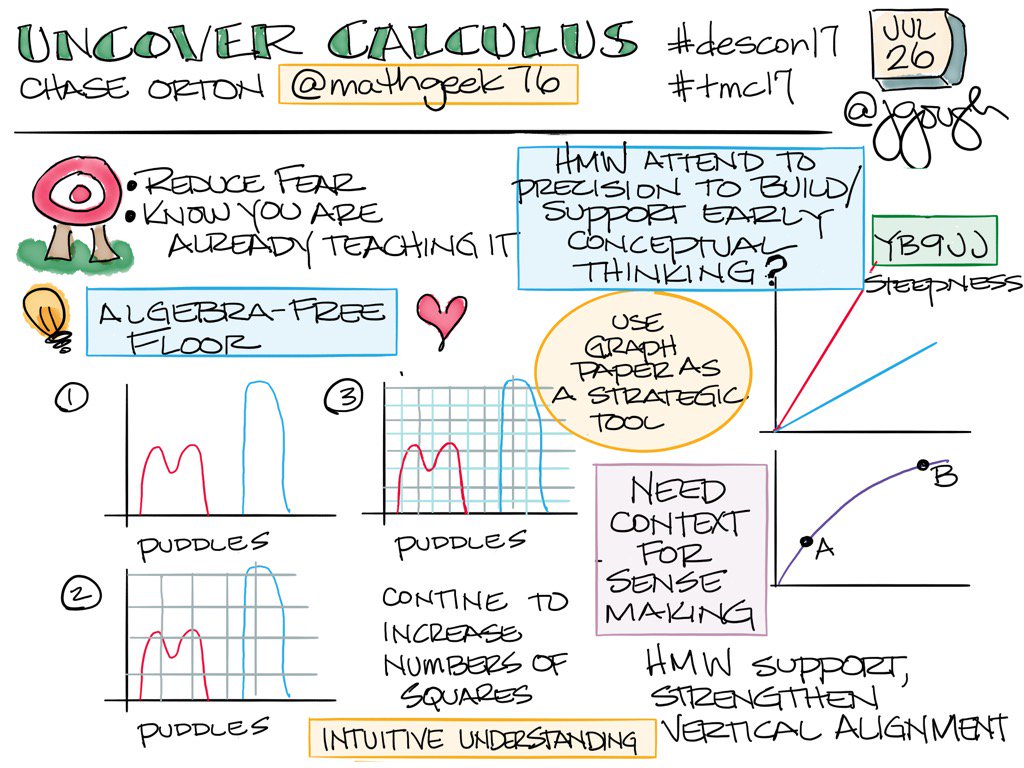 UNCOVER CALCULUS #descon17
CHASE ORTON @mathgeek76 #tmc17
JUL
26
@jgough
• REDUCE FEAR
• KNOW YOU ARE
ALREADY TEACHING IT
HMW ATTEND TO
PRECISION TO BUILD/
SUPPORT EARLY
CONCEPTUAL
THINKING?
YB9JJ
STEEPNESS
ALGEBRA-FREE
FLOOR
USE
GRAPH
PAPER AS
A STRATEGIC
TOOL
1
PUDDLES
3
PUDDLES
2
PUDDLES
CONTINE TO
INCREASE
NUMBERS OF
SQUARES
NEED
CONTEXT
FOR
SENSE
MAKING
A
B
HMW SUPPORT,
STRENGTHEN
VERTICAL ALIGNMENT
INTUITIVE UNDERSTANDING